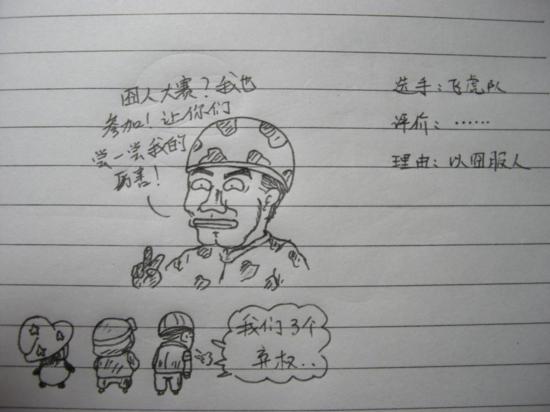 囧人大赛？我也
参加！让你们
尝一尝我的
厉害！
选手：飞虎队
评价：……
理由：以囧服人
我们3个
弃权..